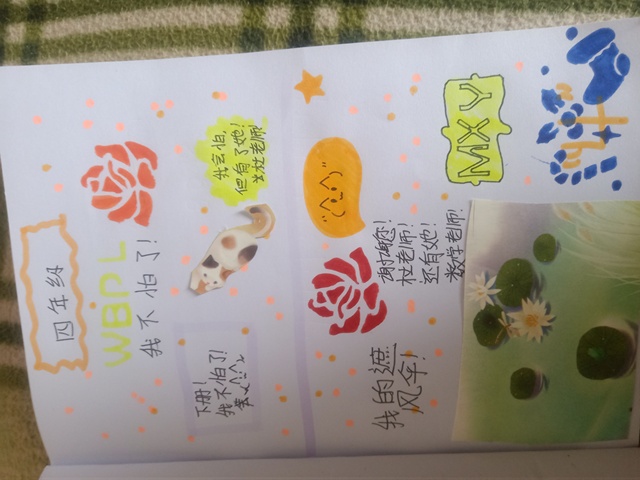 四年级
WBPL
我不怕了!
下册!
我不怕了!
我会怕,
但有了她!
杜老师!
谢谢您!
杜老师!
还有她!
数学老师!
我的遮
风伞!
MXY